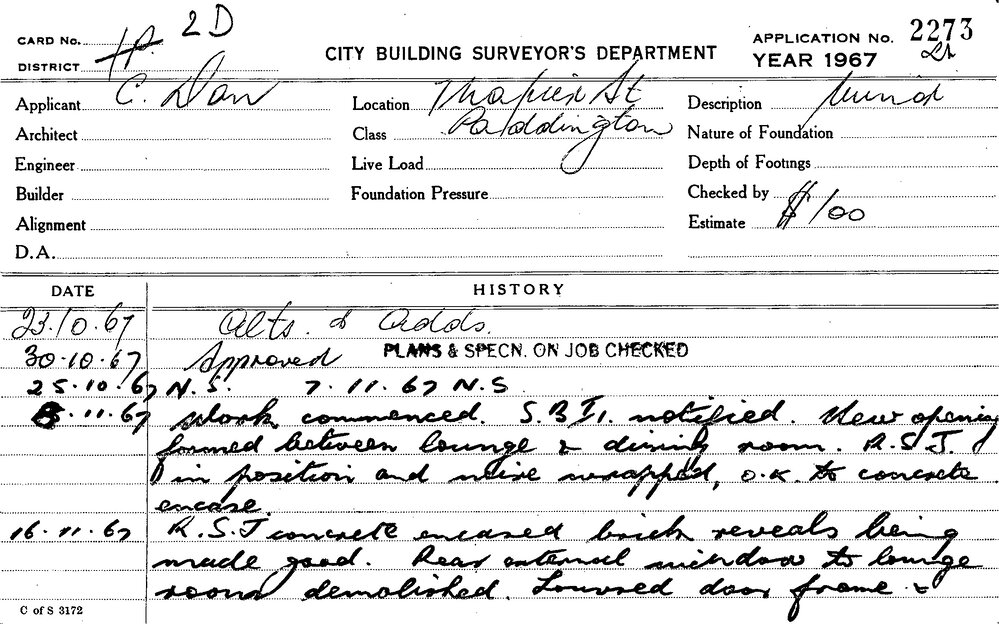 CARD No. 2 D
DISTRICT
CITY BUILDING SURVEYOR'S DEPARTMENT
APPLICATION No. 2273
YEAR 1967
Applicant C. Dan
Location Napier St
Description
Architect
Class Paddington
Nature of Foundation
Engineer
Live Load
Depth of Footings
Builder
Foundation Pressure
Checked by
Alignment
Estimate $100
D.A.
DATE
HISTORY
23.10.67 Alts. & Adds.
30.10.67 Approved PLANS & SPECN. ON JOB CHECKED
25.10.67 N.S. 7.11.67 N.S.
.11.67 Work commenced. S.B.I. notified. New opening
formed between lounge & dining room. R.S.J.
in position and wire wrapped, O.K. to concrete
encase.
16.11.67 R.S.J concrete encased brick reveals being
made good. Rear external window to lounge
room demolished. Louvred door frame &
C of S 3172